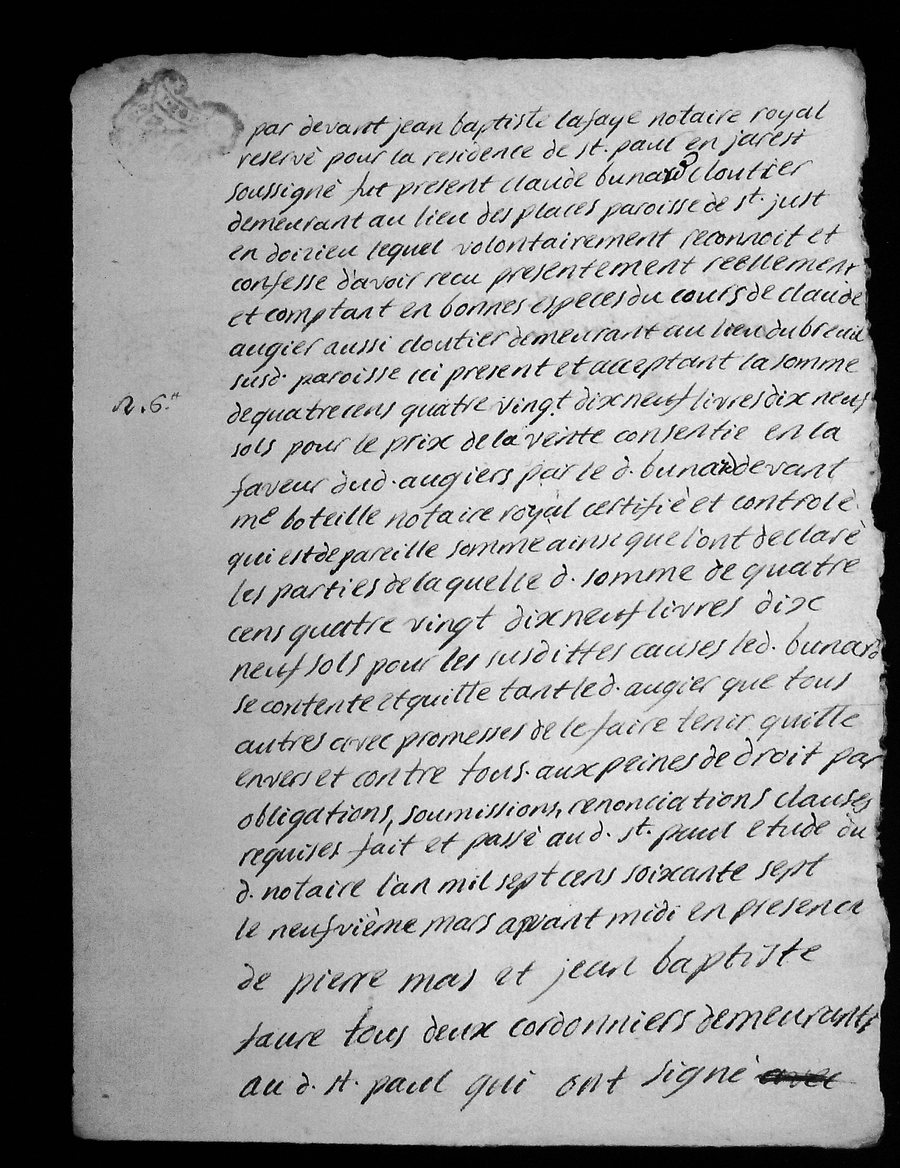 par devant jean baptiste lafaye notaire royal
reservé pour la residence de st. paul en jarest
soussigné fut present claude bunard cloutier
demeurant au lieu des places paroisse de st. just
en doizieu lequel volontairement reconnoit et
confesse d'avoir recu presentement reellement
et comptant en bonnes especes du cours de claude
augier aussi cloutier demeurant au lieu du breuil
susd. paroisse ici present et acceptant la somme
R. 6.
de quatre cens quatre vingt dix neuf livres dix neuf
sols pour le prix de la vente consentie en la
faveur dud. augiers par le d. bunard devant
me boteille notaire royal certifié et controlé
qui est de pareille somme ainsi que l'ont declaré
les parties de laquelle d. somme de quatre
cens quatre vingt dix neuf livres dix
neuf sols pour les susdittes causes led. bunard
se contente et quitte tant led. augier que tous
autres avec promesses de le faire tenir quitte
envers et contre tous. aux peines de droit par
obligations, soumissions, renonciations clauses
requises fait et passé au d. st. paul etude du
d. notaire l'an mil sept cens soixante sept
le neufvième mars avant midi en presence
de pierre mas et jean baptiste
faure tous deux cordonniers demeurants
au d. st. paul qui ont signé avec